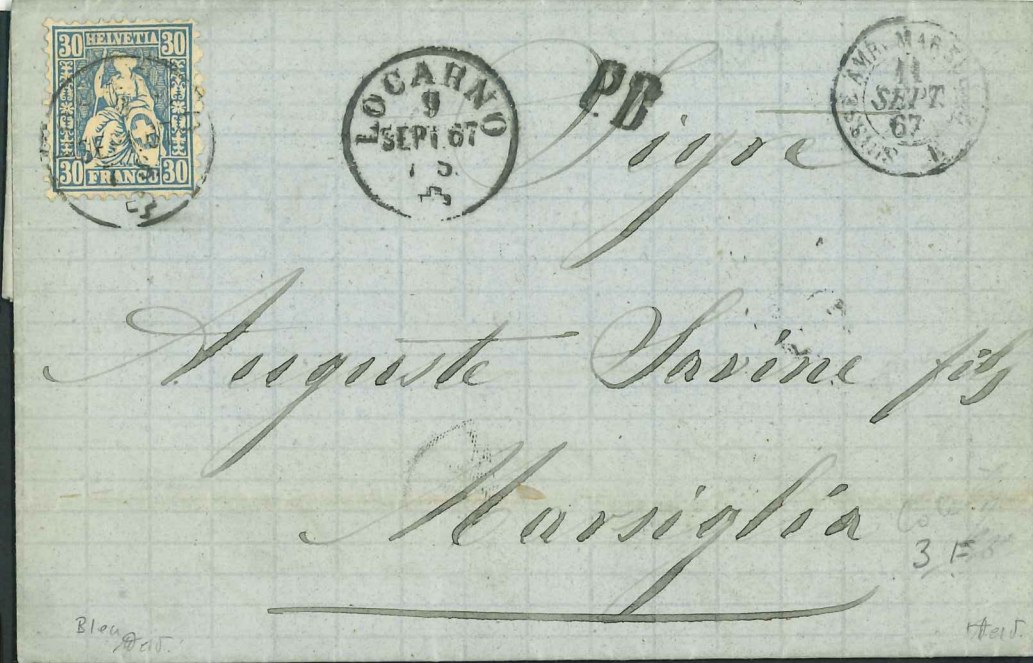 30 HELVETIA 30
30 FRANCO 30
LOCARNO
9
SEPT. 67
P.D.
SUISSE AMB. MARSEILLE
11
SEPT.
67
Sigre
Auguste Savine fils
Marsiglia
3 F
Bleu